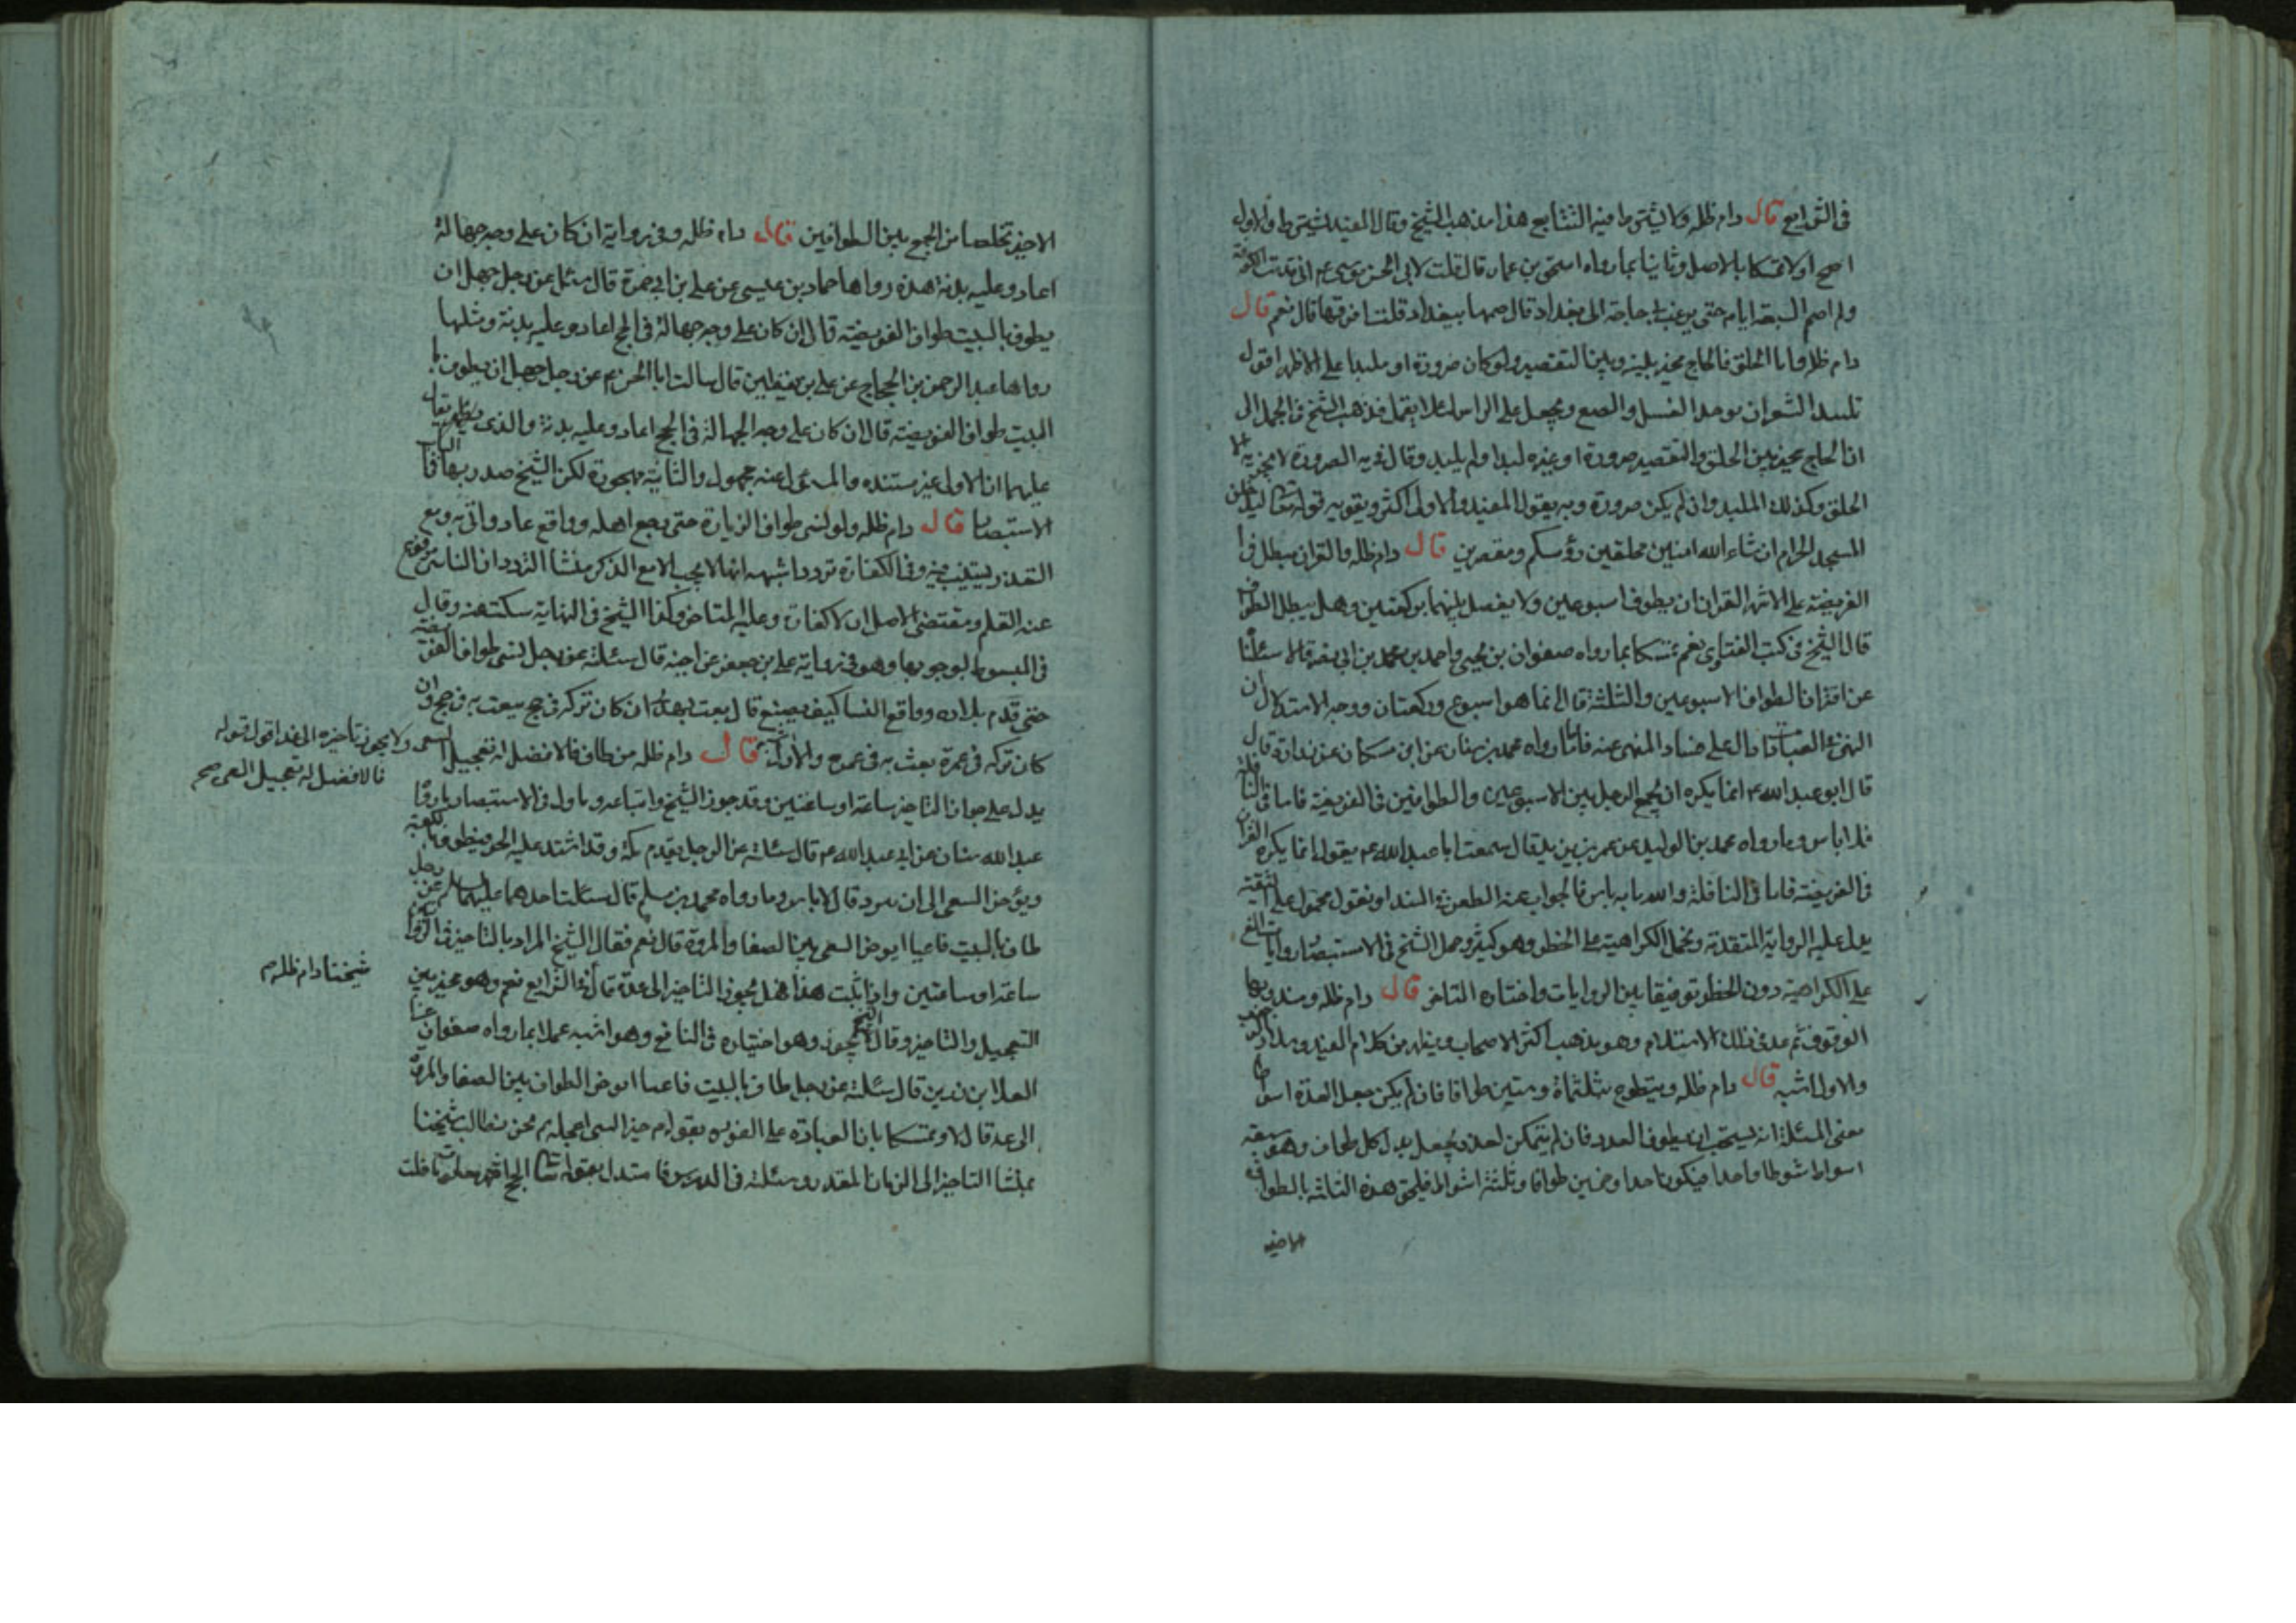 في الشرايع قال دام ظله ولا يشترط فيه التتابع هذا مذهب الشيخ وقال المفيد يشترط والاول
اصح اولا تمسكا بالاصل وثانيا بما رواه اسحق بن عمار قال قلت لابي الحسن موسى ع اني قدمت الكوفة
ولم اصم السبعة ايام حتى نزعت في حاجة الى بغداد قال صمها ببغداد قلت افرقها قال نعم قال
دام ظله واما الحلق فالحاج مخير بينه وبين التقصير ولو كان صرورة او ملبدا على الاظهر اقول
تلبيد الشعر ان يوخذ العسل والصمغ ويجعل على الراس لئلا يقمل فذهب الشيخ في الجمل الى
ان الحاج مخير بين الحلق والتقصير صرورة او غيره لبد او لم يلبد وقال في يه الصرورة لا يجزيه الا
الحلق وكذلك الملبد وان لم يكن صرورة وبه يقول المفيد والاول اكثر ويقويه قوله تعالى لتدخلن
المسجد الحرام ان شاء الله امنين محلقين رؤسكم ومقصرين قال دام ظله والقران مبطل في
الفريضة على الاشهر القران ان يطوف اسبوعين ولا يفصل بينهما بركعتين وهل يبطل الطواف
قال الشيخ في كتب الفتاوى نعم تمسكا بما رواه صفوان بن يحيى واحمد بن محمد بن ابي نصر قالا سئلنا
عن اقتران الطواف الاسبوعين والثلثة قال انما هو اسبوع وركعتان ووجه الاستدلال ان
النهي في العبادات دال على فساد المنهي عنه فاما ما رواه محمد بن سنان عن ابن مسكان عن زرارة قال
قال ابو عبد الله ع انما يكره ان يجمع الرجل بين الاسبوعين والطوافين في الفريضة فاما في النافلة
فلا باس وما رواه محمد بن الوليد عن عمر بن يزيد قال سمعت ابا عبد الله ع يقول انما يكره القران
في الفريضة فاما في النافلة والله ما به باس فالجواب عنه الطعن في السند او نقول محمول على التقية
يدل عليه الرواية المتقدمة ونحمل الكراهية على الحظر وهو كثير وحمل الشيخ في الاستبصار روايات المنع
على الكراهية دون الحظر توفيقا بين الروايات واختاره المتاخر قال دام ظله ومندوبها
الوقوف ثم عد في ذلك الاستلام وهو مذهب اكثر الاصحاب ويظهر من كلام المفيد وسلار
والاول اشبه قال دام ظله ويتطوع بثلثمأة وستين طوافا فان لم يكن جعل العدة اسواطا
معنى المسئلة انه يستحب ان يطوف العدد فان لم يتمكن لعذر يجعل بدل كل طواف وهو سبعة
اسواط شوطا واحدا فيكون احدا وخمسين طوافا وثلثة اشواط فيلحق هذه الثلثة بالطواف
الاخير
الاخير تخلصا من الجمع بين الطوافين قال دام ظله وفي رواية ان كان على وجه جهالة
اعاد وعليه بدنة هذه رواها حماد بن عيسى عن علي بن ابي حمزة قال سئل عن رجل جهل ان
يطوف بالبيت طواف الفريضة قال ان كان على وجه جهالة في الحج اعاد وعليه بدنة ومثلها
رواها عبد الرحمن بن الحجاج عن علي بن يقطين قال سالت ابا الحسن ع عن رجل جهل ان يطوف با
البيت طواف الفريضة قال ان كان على وجه الجهالة في الحج اعاد وعليه بدنة والذي يظهر يقال
عليهما ان الاولى غير مستنده والمسئول عنه مجهول والثانية مهجورة لكن الشيخ صدر بها
الاستبصار قال دام ظله ولو نسي طواف الزيارة حتى رجع اهله وواقع عاد واتى به ومع
التعذر يستنيب فيه وفي الكفارة تردد اشبهه انها لا يجب الا مع الذكر منشا التردد ان الناسي مرفوع
عنه القلم ومقتضى الاصل ان لا كفارة وعليه المتاخر وكذا الشيخ في النهاية سكت عنه وقال
في المبسوط بوجوبها وهو في رواية علي بن جعفر عن اخيه قال سئلته عن رجل نسي طواف الفريضة
حتى قدم بلاده وواقع النسا كيف يصنع قال يبعث بهدي ان كان تركه في حج يبعث به في حج وان
كان تركه في عمرة بعث به في عمرة والاول اشبه قال دام ظله من طاف فالافضل له تعجيل السعي
ولا يجوز تاخيره الى غد اقول قوله
فالافضل له تعجيل السعي صح
يدل على جواز التاخير ساعة او ساعتين وقد جوز الشيخ واتباعه وماول في الاستبصار ما رواه
عبد الله سنان عن ابي عبد الله ع قال سئلته عن الرجل يقدم مكة وقد اشتد عليه الحر فيطوف بالكعبة
ويؤخر السعي الى ان يبرد قال لا باس وما رواه محمد بن مسلم قال سئلت احدهما عليهما السلم عن رجل
طاف بالبيت فاعيا ايؤخر السعي بين الصفا والمروة قال نعم فقال الشيخ المراد بالتاخير في الروايتين
ساعة او ساعتين واذا ثبت هذا فهل يجوز التاخير الى غدة قال في الشرايع نعم وهو مخير بين
التعجيل والتاخير وقال الشيخ لا يجوز وهو اختياره في النافع وهو اشبه عملا بما رواه صفوان عن
العلا بن رزين قال سئلته عن رجل طاف بالبيت فاعيا ايؤخر الطواف بين الصفا والمروة
الى غد قال لا وتمسكا بان العبادة على الفور
نحن نطالب شيخنا
شيخنا دام ظله م
بمنشا التاخير الى الزمان المقدر وسئلته في الدرس فاستدل بقوله تعالى الحج اشهر معلومات فقلت